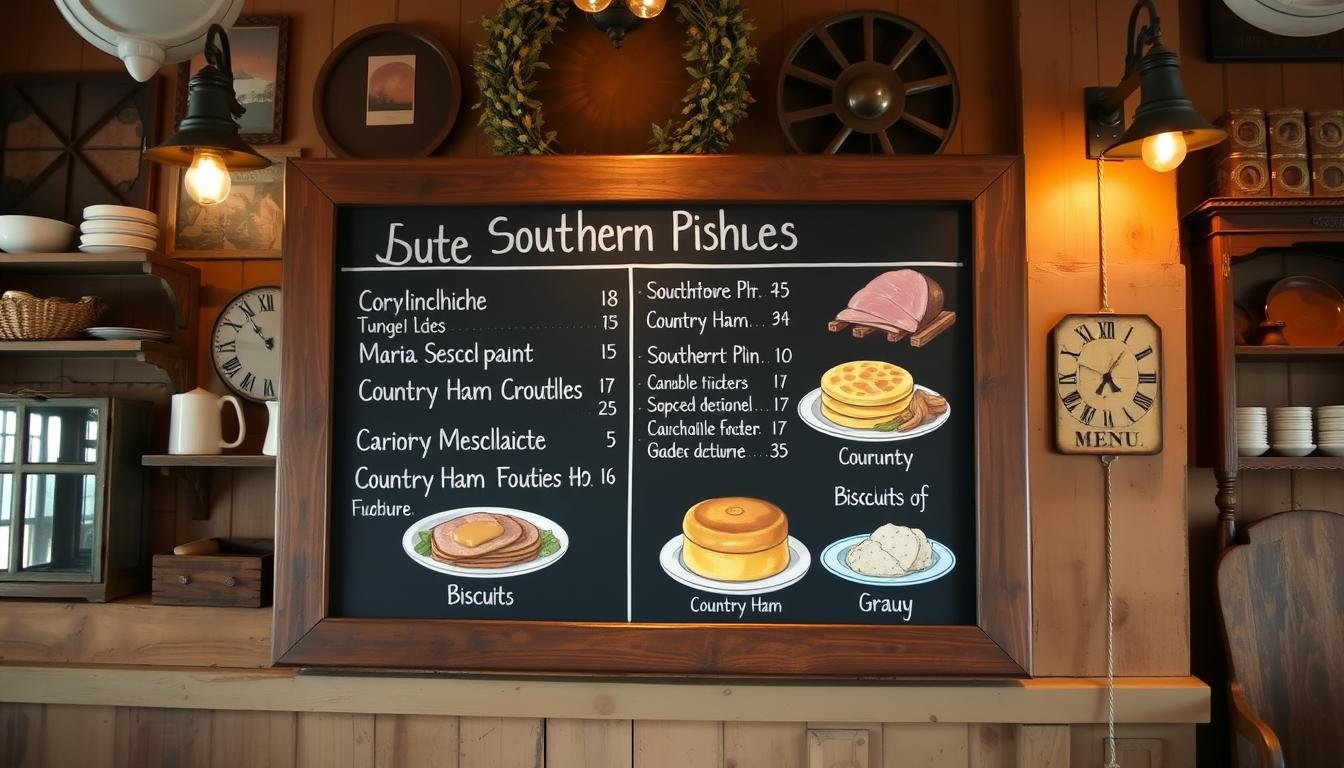 Bute Southern Pishues
Corylinclhiche 18
Tungel Ldes 15
Maria Sesccl paint 15
Country Ham Croutlles 17
25
Cariory Mescllaicte 5
Country Ham Fouties Ho. 16
Fuckure.
Biscuits
Southtowe Plr. 45
Country Ham... 34
Southerrt Plin.. 10
Canable fricters 17
Sopced detionel... 17
Cauchaille Frcter. 17
Gader dctiurne.... 35
Courunty
Bisccuits of
Country Ham
Grauy
MENU.